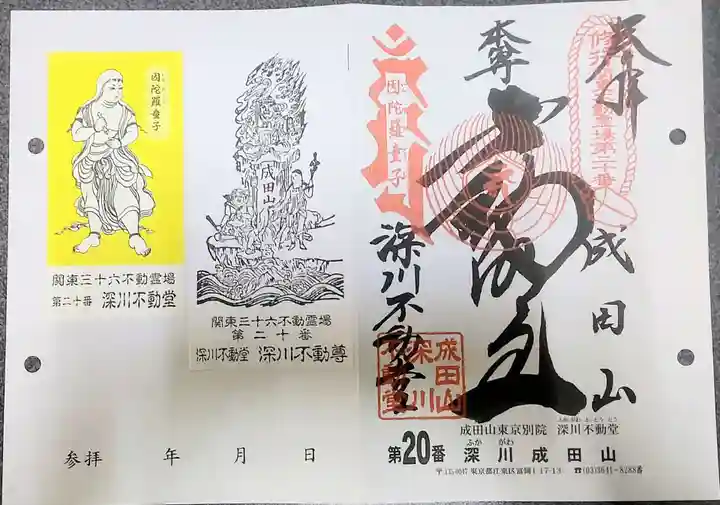 因陀羅童子
関東三十六不動霊場
第二十番 深川不動堂
成田山
関東三十六不動霊場
第二十番
深川不動堂 深川不動尊
参拝 年 月 日
奉拝
成田山
本尊
因陀羅童子
深川不動堂
成田山
深川
不動堂
成田山東京別院 深川不動堂
ふか がわ
第20番 深川成田山
東京都江東区富岡1-17-13 ☎(03)3641-8288番